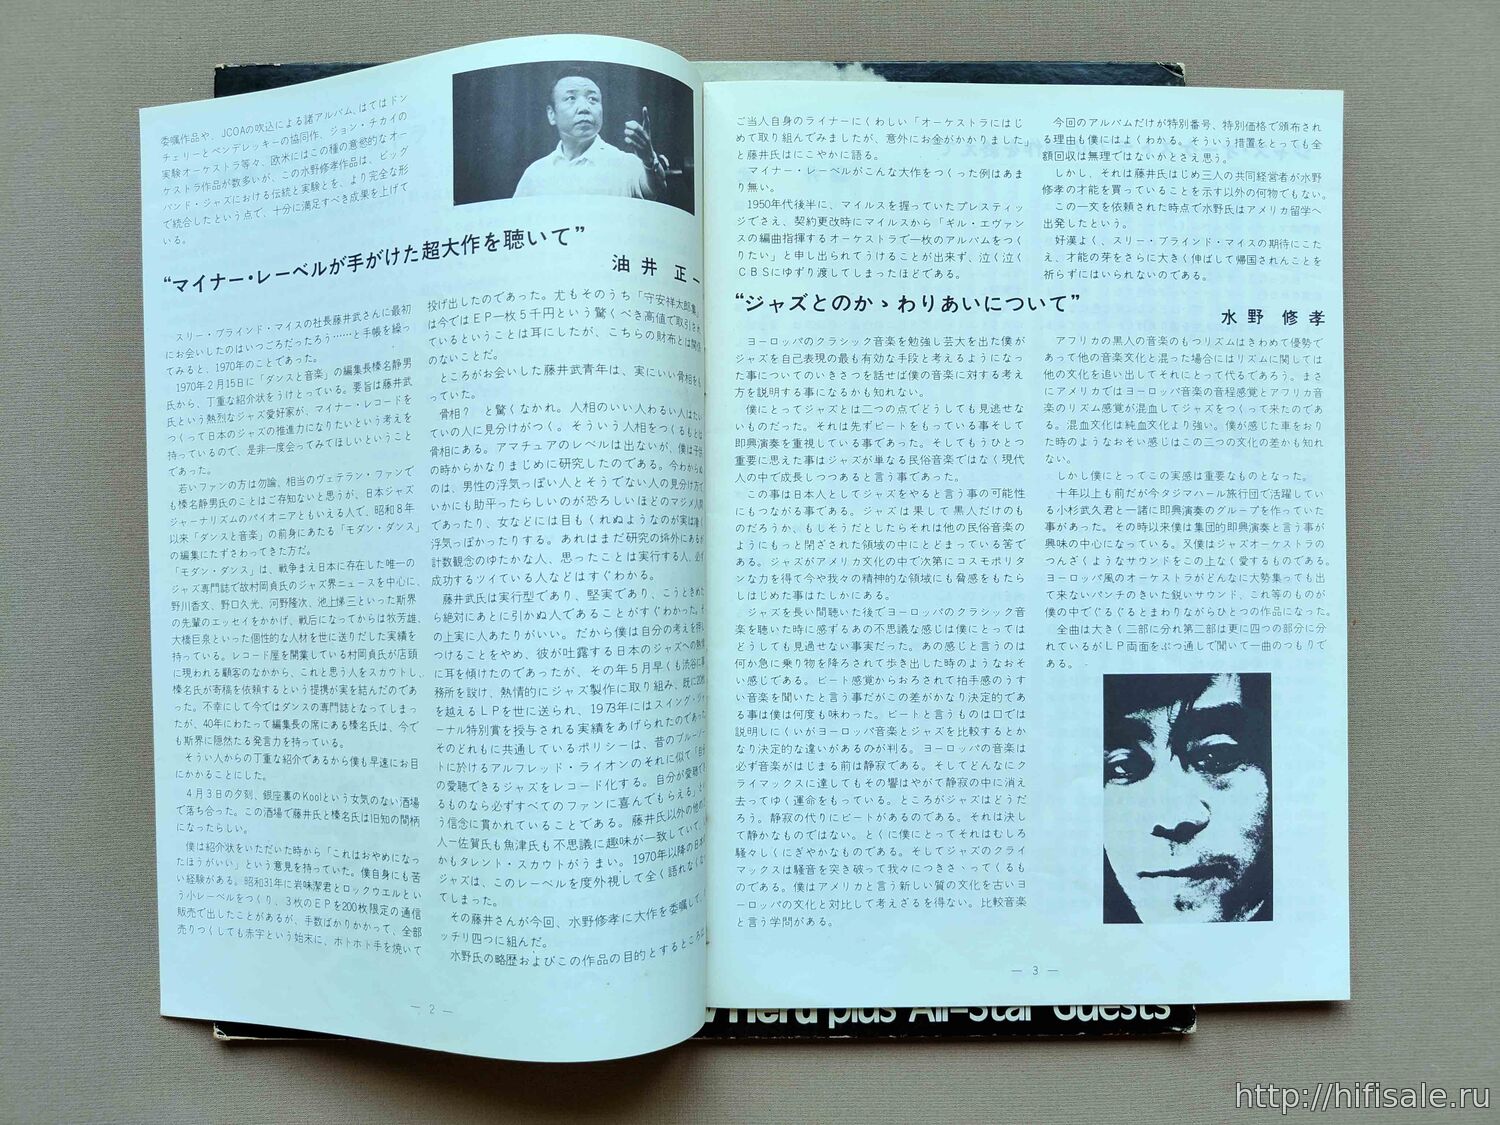 委嘱作品や、JCOAの吹込による諸アルバム、はてはドン
チェリーとペンデレッキーの協同作、ジョン・チカイの
実験オーケストラ等々、欧米にはこの種の意慾的なオー
ケストラ作品が数多いが、この水野修孝作品は、ビッグ
バンド・ジャズにおける伝統と実験とを、より完全な形
で統合したという点で、十分に満足すべき成果を上げて
いる。
“マイナー・レーベルが手がけた超大作を聴いて”
油井 正一
スリー・ブラインド・マイスの社長藤井武さんに最初
にお会いしたのはいつごろだったろう……と手帳を繰っ
てみると、1970年のことであった。
1970年2月15日に「ダンスと音楽」の編集長榛名静男
氏から、丁重な紹介状をうけとっている。要旨は藤井武
氏という熱烈なジャズ愛好家が、マイナー・レコードを
つくって日本のジャズの推進力になりたいという考えを
持っているので、是非一度会ってみてほしいということ
であった。
若いファンの方は勿論、相当のヴェテラン・ファンで
も榛名静男氏のことはご存知ないと思うが、日本ジャズ
ジャーナリズムのパイオニアともいえる人で、昭和8年
以来「ダンスと音楽」の前身にあたる「モダン・ダンス」
の編集にたずさわってきた方だ。
「モダン・ダンス」は、戦争まえ日本に存在した唯一の
ジャズ専門誌で故村岡貞氏のジャズ界ニュースを中心に、
野川香文、野口久光、河野隆次、池上悌三といった斯界
の先輩のエッセイをかかげ、戦后になってからは牧芳雄、
大橋巨泉といった個性的な人材を世に送りだした実績を
持っている。レコード屋を開業している村岡貞氏が店頭
に現われる顧客のなかから、これと思う人をスカウトし、
榛名氏が寄稿を依頼するという提携が実を結んだのであ
った。不幸にして今ではダンスの専門誌となってしまっ
たが、40年にわたって編集長の席にある榛名氏は、今で
も斯界に隠然たる発言力を持っている。
そういう人からの丁重な紹介であるから僕も早速にお目
にかかることにした。
4月3日の夕刻、銀座裏のKoolという女気のない酒場
で落ち合った。この酒場で藤井氏と榛名氏は旧知の間柄
になったらしい。
僕は紹介状をいただいた時から「これはおやめになっ
たほうがいい」という意見を持っていた。僕自身にも苦
い経験がある。昭和31年に岩味潔君とロックウエルとい
う小レーベルをつくり、3枚のEPを200枚限定の通信
販売で出したことがあるが、手数ばかりかかって、全部
売りつくしても赤字という始末に、ホトホト手を焼いて
投げ出したのであった。尤もそのうち「守安祥太郎集」
は今ではEP一枚5千円という驚くべき高値で取引され
ているということは耳にしたが、こちらの財布とは関係
のないことだ。
ところがお会いした藤井武青年は、実にいい骨相をし
ていた。
骨相？ と驚くなかれ。人相のいい人わるい人はたい
ていの人に見分けがつく。そういう人相をつくるもとは
骨相にある。アマチュアのレベルは出ないが、僕は子供
の時からかなりまじめに研究したのである。今わからぬ
のは、男性の浮気っぽい人とそうでない人の見分け方で
いかにも助平ったらしいのが恐ろしいほどのマジメ人間
であったり、女などには目もくれぬようなのが実は凄く
浮気っぽかったりする。あれはまだ研究の埓外にあるが
計数観念のゆたかな人、思ったことは実行する人、必ず
成功するツイている人などはすぐわかる。
藤井武氏は実行型であり、堅実であり、こうときめた
ら絶対にあとに引かぬ人であることがすぐわかった。そ
の上実に人あたりがいい。だから僕は自分の考えを押し
つけることをやめ、彼が吐露する日本のジャズへの熱情
に耳を傾けたのであったが、その年5月早くも渋谷に事
務所を設け、熱情的にジャズ製作に取り組み、既に20枚
を越えるLPを世に送られ、1973年にはスイング・ジャ
ーナル特別賞を授与される実績をあげられたのであった
そのどれもに共通しているポリシーは、昔のブルーノー
トに於けるアルフレッド・ライオンのそれに似て「自分
の愛聴できるジャズをレコード化する。自分が愛聴でき
るものなら必ずすべてのファンに喜んでもらえる」とい
う信念に貫かれていることである。藤井氏以外の他の二
人―佐賀氏も魚津氏も不思議に趣味が一致していて、し
かもタレント・スカウトがうまい。1970年以降の日本の
ジャズは、このレーベルを度外視して全く語れなくなっ
てしまった。
その藤井さんが今回、水野修孝に大作を委嘱して、ガ
ッチリ四つに組んだ。
水野氏の略歴およびこの作品の目的とするところは
— 2 —
ご当人自身のライナーにくわしい「オーケストラにはじ
めて取り組んでみましたが、意外にお金がかかりました」
と藤井氏はにこやかに語る。
マイナー・レーベルがこんな大作をつくった例はあま
り無い。
1950年代後半に、マイルスを握っていたプレスティッ
ジでさえ、契約更改時にマイルスから「ギル・エヴァン
スの編曲指揮するオーケストラで一枚のアルバムをつく
りたい」と申し出られてうけることが出来ず、泣く泣く
CBSにゆずり渡してしまったほどである。
今回のアルバムだけが特別番号、特別価格で頒布され
る理由も僕にはよくわかる。そういう措置をとっても全
額回収は無理ではないかとさえ思う。
しかし、それは藤井氏はじめ三人の共同経営者が水野
修孝の才能を買っていることを示す以外の何物でもない。
この一文を依頼された時点で水野氏はアメリカ留学へ
出発したという。
好漢よく、スリー・ブラインド・マイスの期待にこた
え、才能の芽をさらに大きく伸ばして帰国されんことを
祈らずにはいられないのである。
“ジャズとのかゝわりあいについて”
水野 修孝
ヨーロッパのクラシック音楽を勉強し芸大を出た僕が
ジャズを自己表現の最も有効な手段と考えるようになっ
た事についてのいきさつを話せば僕の音楽に対する考え
方を説明する事になるかも知れない。
僕にとってジャズとは二つの点でどうしても見逃せな
いものだった。それは先ずビートをもっている事そして
即興演奏を重視している事であった。そしてもうひとつ
重要に思えた事はジャズが単なる民俗音楽ではなく現代
人の中で成長しつつあると言う事であった。
この事は日本人としてジャズをやると言う事の可能性
にもつながる事である。ジャズは果して黒人だけのも
のだろうか、もしそうだとしたらそれは他の民俗音楽の
ようにもっと閉ざされた領域の中にとどまっている筈で
ある。ジャズがアメリカ文化の中で次第にコスモポリタ
ンな力を得て今や我々の精神的な領域にも脅感をもたら
しはじめた事はたしかにある。
ジャズを長い間聴いた後でヨーロッパのクラシック音
楽を聴いた時に感ずるあの不思議な感じは僕にとっては
どうしても見過せない事実だった。あの感じと言うのは
何か急に乗り物を降ろされて歩き出した時のようなおそ
い感じである。ビート感覚からおろされて拍手感のうす
い音楽を聞いたと言う事だがこの差がかなり決定的であ
る事は僕は何度も味わった。ビートと言うものは口では
説明しにくいがヨーロッパ音楽とジャズを比較するとか
なり決定的な違いがあるのが判る。ヨーロッパの音楽は
必ず音楽がはじまる前は静寂である。そしてどんなにク
ライマックスに達してもその響はやがて静寂の中に消え
去ってゆく運命をもっている。ところがジャズはどうだ
ろう。静寂の代りにビートがあるのである。それは決し
て静かなものではない。とくに僕にとってそれはむしろ
騒々しくにぎやかなものである。そしてジャズのクライ
マックスは騒音を突き破って我々につきさゝってくるも
のである。僕はアメリカと言う新しい質の文化を古いヨ
ーロッパの文化と対比して考えざるを得ない。比較音楽
と言う学問がある。
アフリカの黒人の音楽のもつリズムはきわめて優勢で
あって他の音楽文化と混った場合にはリズムに関しては
他の文化を追い出してそれにとって代るであろう。まさ
にアメリカではヨーロッパ音楽の音程感覚とアフリカ音
楽のリズム感覚が混血してジャズをつくって来たのであ
る。混血文化は純血文化より強い。僕が感じた車をおり
た時のようなおそい感じはこの三つの文化の差かも知れ
ない。
しかし僕にとってこの実感は重要なものとなった。
十年以上も前だが今タジマハール旅行団で活躍してい
る小杉武久君と一諸に即興演奏のグループを作っていた
事があった。その時以来僕は集団的即興演奏と言う事が
興味の中心になっている。又僕はジャズオーケストラの
つんざくようなサウンドをこの上なく愛するものである。
ヨーロッパ風のオーケストラがどんなに大勢集っても出
て来ないパンチのきいた鋭いサウンド、これ等のものが
僕の中でぐるぐるとまわりながらひとつの作品になった。
全曲は大きく二部に分れ第二部は更に四つの部分に分
れているがLP両面をぶつ通しで聞いて一曲のつもりで
ある。
— 3 —
Herd plus All-Star Guests
http://hifisale.ru